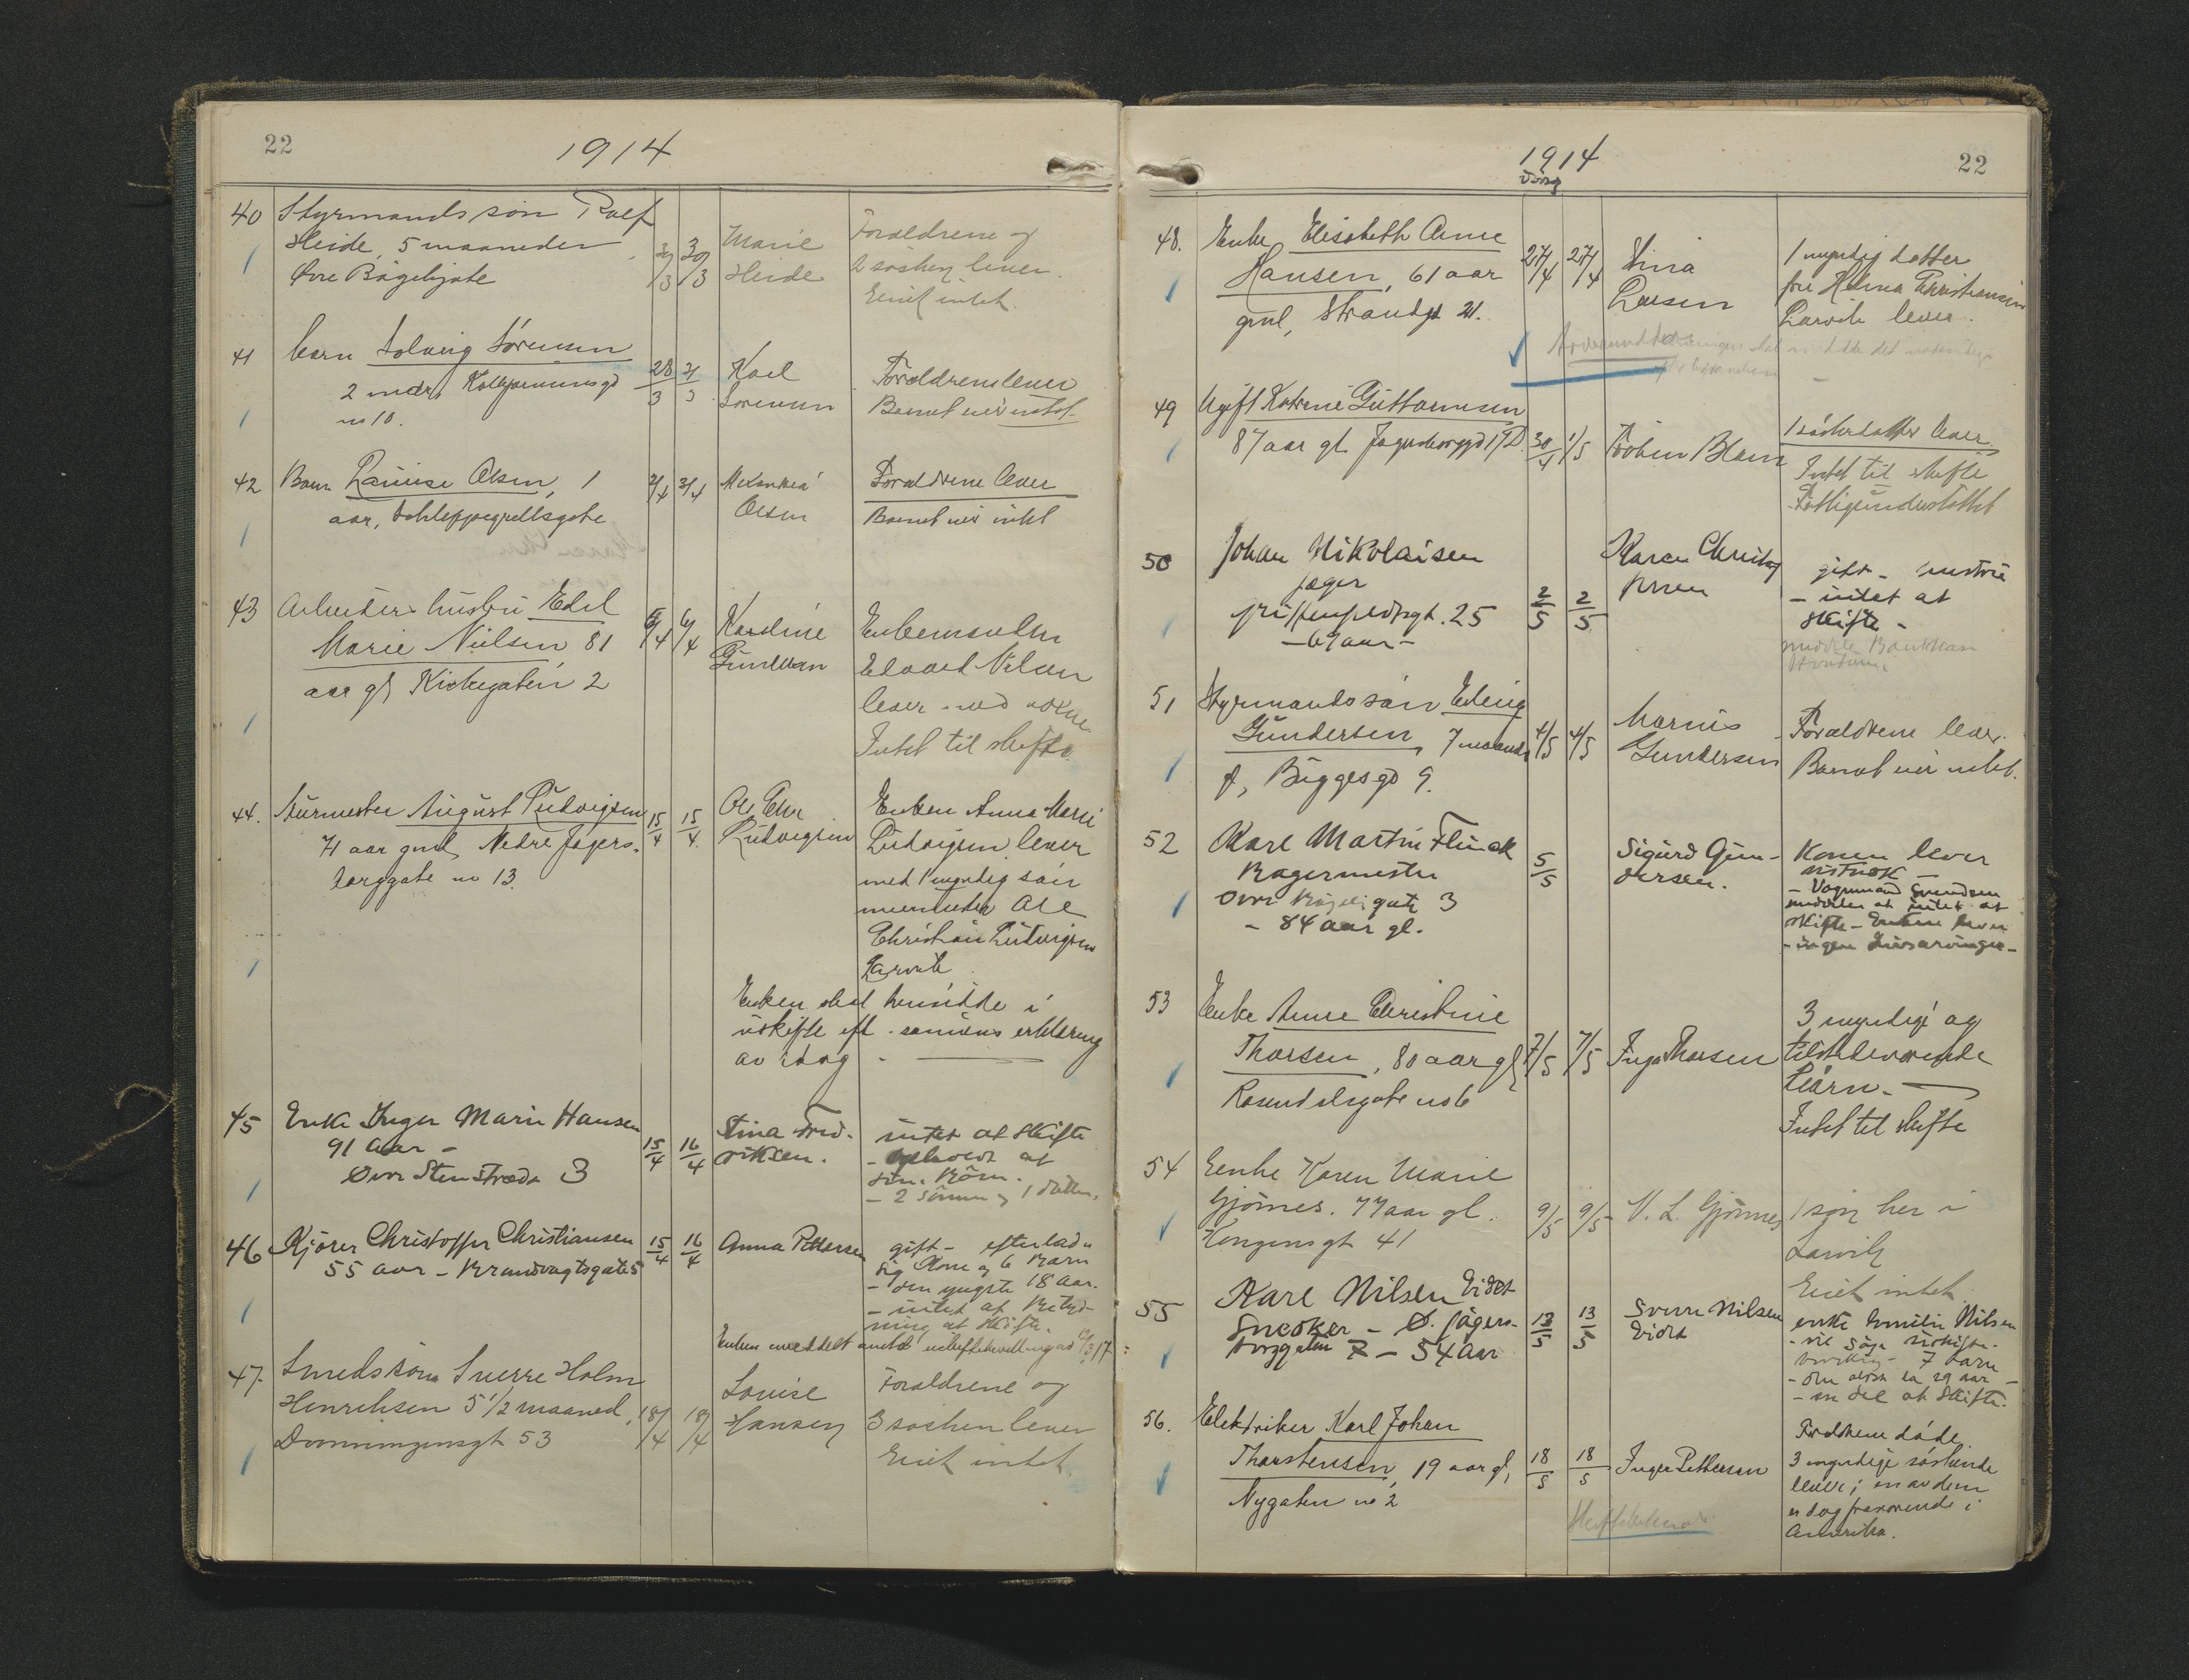 22
1914
40 Styrmandssøn Rolf
Heide, 5 maaneder 30/3 30/3 Marie Heide
Øvre Bøgeligate
Forældrene og
2 søsken lever.
Eiet intet.
41 barn Solveig Sørensen
2 mdr, gd 28/3
no 10.
Karl
Sorensen
Forældrene lever
Barnet eier intet
42 Barn Louise Olsen, 1
aar, Schleppegrellsgate 2/4 3/4
Olsen
Forældrene lever
Barnet eier intet
43 Arbeider hustru Edel
Marie Nielsen 81
aar gl Kirkegaten 2
6/4 6/4
Karoline
Enkemanden
Edvard Nilsen
lever med
Intet til skifte
44. Murmester August Ludvigsen
71 aar gml, Nedre Jegers-
borggate no 13.
15/4 15/4.
Ole Chr
Ludvigsen
Enken Anna Marie
Ludvigsen lever
med 1 myndig søn
murmester Ole
Christian Ludvigsen
Larvik
Enken skal hensidde i
uskifte eft. sønnens erklæring
av idag -
45 Enke Inger Marie Hansen
91 aar -
Øvre Stenstræde 3
15/4 16/4
Stina Fred-
riksen.
intet at skifte
- at
sine Börn.
- 2 sönner og 1 datter.
46 Kjører Christoffer Christiansen
55 aar - Brandvagtsgate 5
15/4 16/4
Anna Pettersen
gift - efterlader
sig Kone og 6 Barn
- den yngste 18 aar.
- intet af Betyd-
ning at skifte.
Enken meddelt uskiftebevilling
47. Smedssøn Sverre Holm
Henriksen 5 1/2 maaned,
Dronningensgt 53
18/4 18/4
Louise
Hansen
Forældrene og
3 søsken lever
Eiet intet.
1914
22
48. Enke Elisabeth Anne
Hansen, 61 aar
gml, Strandgt 21.
27/4 27/4
Stina
Larsen
1 myndig datter
fru Helma Christiansen
Larvik lever.
49 Ugift Katrine Guttormsen
87 aar gl. 30/4 1/5
1 søsterdatter lever.
Intet til skifte
Fattigunderstøttet
50 Johan Nikolaisen
Jæger
Griffenfeldsgt. 25
- 67 aar -
2/5 2/5
Karen Christof
fersen
gift - hustru
- intet at
skifte -
51 Styrmandssøn Erling
Gundersen, 7 maaneder
gl, Byggesgd 9.
4/5 4/5
Marius
Gundersen
Forældrene lever.
Barnet eier intet.
52 Karl Martin Flinck
Bagermester
Øvre Bøgeligate 3
- 84 aar gl.
5/5
Sigurd Gun-
dersen.
Konen lever
- Vognmand Svendsen
meddeler at intet at
skifte - Enken lever
- ingen Livsarvinger -
53 Enke Anne Christine
Thorsen, 80 aar gl
Rosendalsgate no 6
7/5 7/5
Inga Thorsen
3 myndige og
tilstedeværende
børn. -
Intet til skifte
54 Enke Karen Marie
Gjønnes. 77 aar gl.
Kongensgt 41
9/5 9/5
V. L. Gjønnes
1 søn her i
Larvik
Eiet intet
55 Karl Nilsen Eidet
Snedker - Ø. Jägers-
borggaten 7 - 54 aar
13/5 13/5
Sverre Nilsen
Eidet
enke Emilie Nilsen
- vil søge uskifte-
bevilling - 7 barn
- den ældste ca 29 aar -
- en del at skifte.
56. Elektriker Karl Johan
Thorstensen, 19 aar gl,
Nygaten no 2
18/5 18/5
Inger Pettersen
Forældrene døde
3 myndige søskende
lever; en av dem
er dog fraværende i
Amerika.